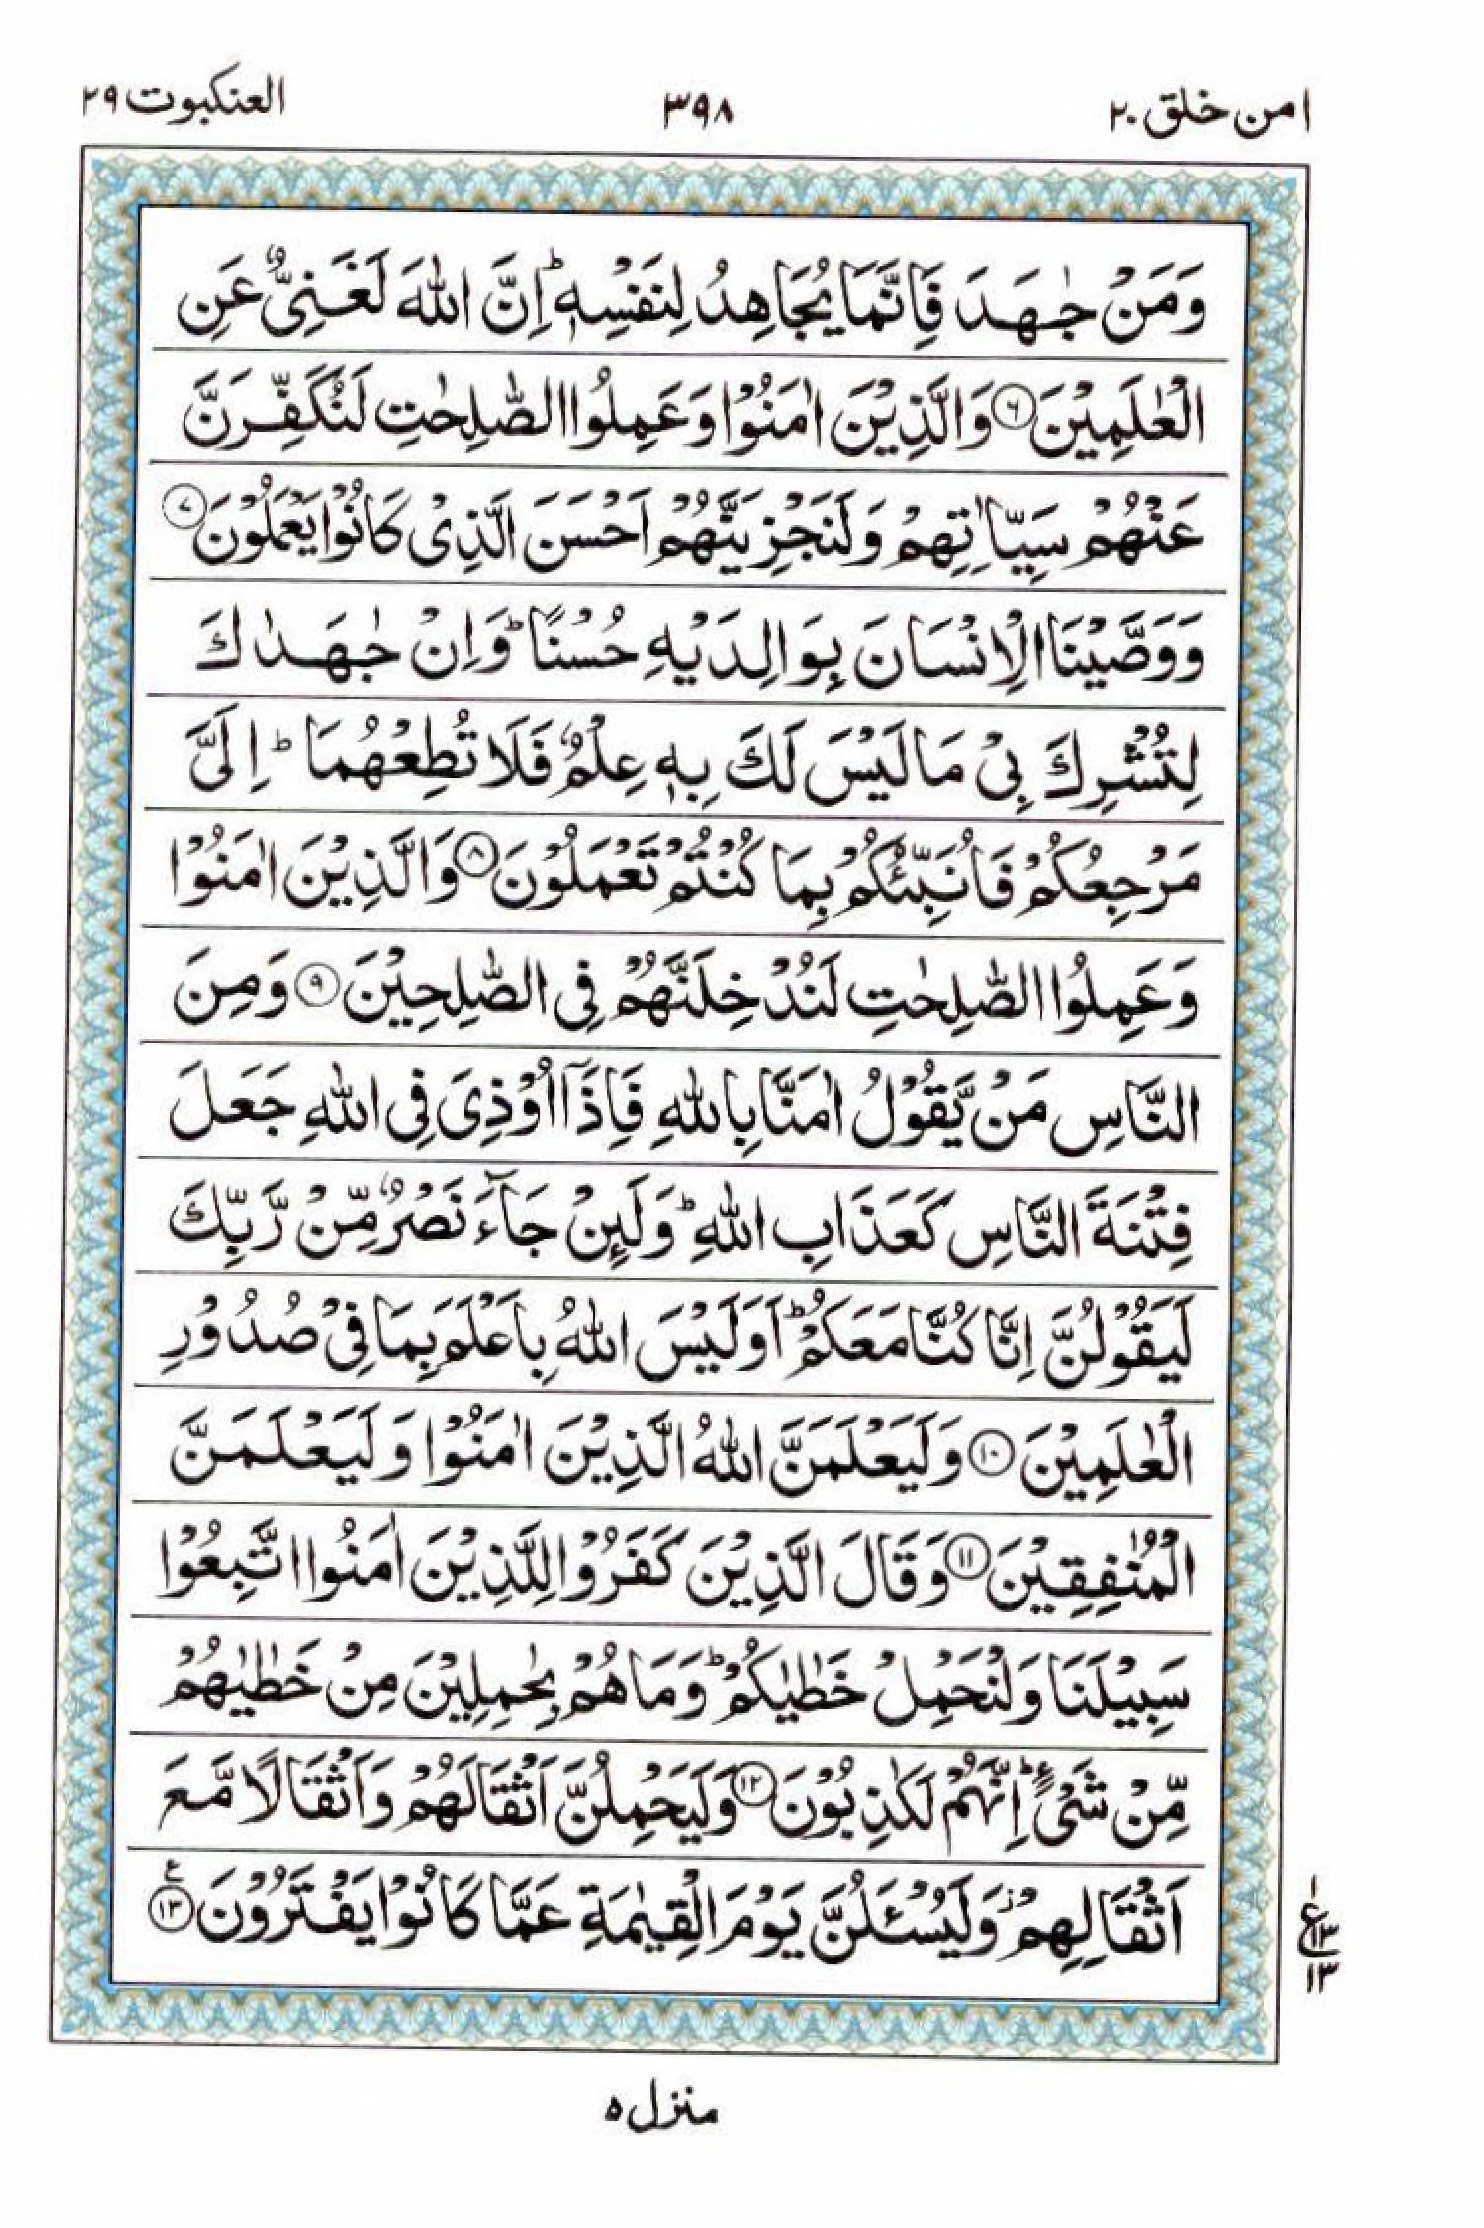 امن خلق ٢٠
٣٩٨
العنكبوت ٢٩
وَمَنْ جٰهَدَ فَاِنَّمَا يُجَاهِدُ لِنَفْسِهٖ ؕ اِنَّ اللّٰهَ لَغَنِيٌّ عَنِ
الْعٰلَمِيْنَ ۝٦ وَالَّذِيْنَ اٰمَنُوْا وَعَمِلُوا الصّٰلِحٰتِ لَنُكَفِّرَنَّ
عَنْهُمْ سَيِّاٰتِهِمْ وَلَنَجْزِيَنَّهُمْ اَحْسَنَ الَّذِيْ كَانُوْا يَعْمَلُوْنَ ۝٧
وَوَصَّيْنَا الْاِنْسَانَ بِوَالِدَيْهِ حُسْنًا ؕ وَاِنْ جٰهَدٰكَ
لِتُشْرِكَ بِيْ مَا لَيْسَ لَكَ بِهٖ عِلْمٌ فَلَا تُطِعْهُمَا ؕ اِلَيَّ
مَرْجِعُكُمْ فَاُنَبِّئُكُمْ بِمَا كُنْتُمْ تَعْمَلُوْنَ ۝٨ وَالَّذِيْنَ اٰمَنُوْا
وَعَمِلُوا الصّٰلِحٰتِ لَنُدْخِلَنَّهُمْ فِي الصّٰلِحِيْنَ ۝٩ وَمِنَ
النَّاسِ مَنْ يَّقُوْلُ اٰمَنَّا بِاللّٰهِ فَاِذَآ اُوْذِيَ فِي اللّٰهِ جَعَلَ
فِتْنَةَ النَّاسِ كَعَذَابِ اللّٰهِ ؕ وَلَئِنْ جَآءَ نَصْرٌ مِّنْ رَّبِّكَ
لَيَقُوْلُنَّ اِنَّا كُنَّا مَعَكُمْ ؕ اَوَلَيْسَ اللّٰهُ بِاَعْلَمَ بِمَا فِيْ صُدُوْرِ
الْعٰلَمِيْنَ ۝١٠ وَلَيَعْلَمَنَّ اللّٰهُ الَّذِيْنَ اٰمَنُوْا وَلَيَعْلَمَنَّ
الْمُنٰفِقِيْنَ ۝١١ وَقَالَ الَّذِيْنَ كَفَرُوْا لِلَّذِيْنَ اٰمَنُوا اتَّبِعُوْا
سَبِيْلَنَا وَلْنَحْمِلْ خَطٰيٰكُمْ ؕ وَمَا هُمْ بِحٰمِلِيْنَ مِنْ خَطٰيٰهُمْ
مِّنْ شَيْءٍ ؕ اِنَّهُمْ لَكٰذِبُوْنَ ۝١٢ وَلَيَحْمِلُنَّ اَثْقَالَهُمْ وَاَثْقَالًا مَّعَ
اَثْقَالِهِمْ ؗ وَلَيُسْـَٔلُنَّ يَوْمَ الْقِيٰمَةِ عَمَّا كَانُوْا يَفْتَرُوْنَ ۝١٣ ع
١
ع ١٣
١٣
منزل ٥